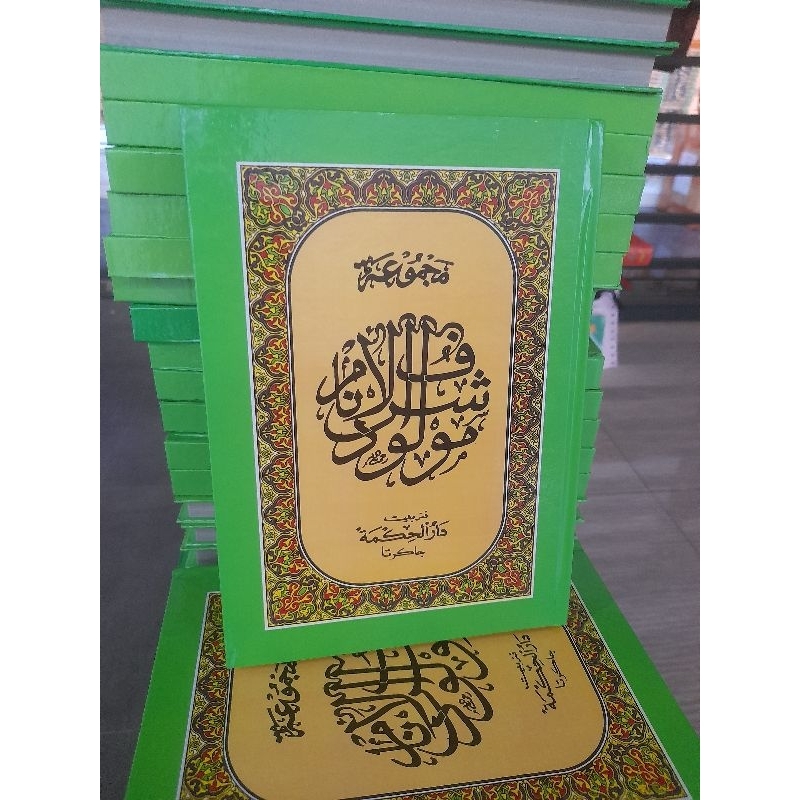 مَجْمُوْعَة
مولود شرف الانام
فنربيت
دَارُ الْحِكْمَة
جاكرتا
مَجْمُوْعَة
مولود شرف الانام
فنربيت
دَارُ الْحِكْمَة
جاكرتا